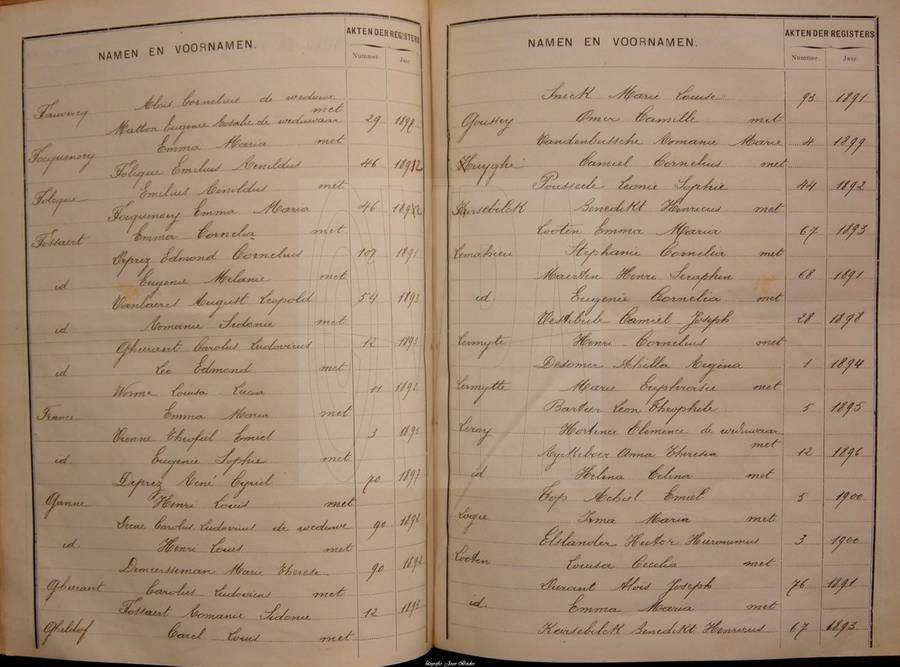 NAMEN EN VOORNAMEN.
AKTEN DER REGISTERS
Nummer. Jaar.
Fauvercq Aloïs Cornelius de weduwe met
Matton Eugenie Rosalie de weduwaar 29 1897
Focquenoey Emma Maria met
Foleque Emilius Cenildus 46 1892
Foleque Emilius Cenildus met
Focquenoey Emma Maria 46 1892
Fossaert Emma Cornelia met
Deprez Edmond Cornelius 107 1891
id Eugenie Melanie met
Vanlaeres August Leopold 54 1893
id Romanie Sidonie met
Gheraert Carolus Ludovicus 12 1893
id Leo Edmond met
Worme Louisa Lucia 11
France Emma Maria met
Vienne Theofiel Emiel 3
id. Eugenie Sophie met
Deprez René Cyriel 70 1897
Ganne Henri Louis met
Carolus Ludovicus de weduwe 90 1892
id. Henri Louis met
Demeersseman Marie Therese 90 1892
Gheraert Carolus Ludovicus met
Fossaert Romanie Sidonie 12 1893
Gheldof Carel Louis met
NAMEN EN VOORNAMEN.
AKTEN DER REGISTERS
Nummer. Jaar.
Sneck Marie Louise 93 1891
Goussey Omer Camille met
Vandenbussche Romanie Marie 4 1899
Huyghe Camiel Cornelius met
Pousseele Leonie Sophie 44 1892
Keirsebilck Benedikt Henricus met
Looten Emma Maria 67 1893
Lemahieu Stephanie Cornelia met
Maerten Henri Seraphin 68 1891
id. Eugenie Cornelia met
Camiel Joseph 28 1898
Lermyte Henri Cornelius met
Desomer Abilla Regina 1 1894
Lermytte Marie Euphrosie met
Bartier Leon Theophile 5 1895
Leroy Hortence Clemence de weduwaar met
Anna Theresia 12 1896
id Helena Celina met
Top Achiel Emiel 5 1900
Logie Irma Maria met
Elslander Hector Hieronimus 3 1900
Looten Louisa Cecilia met
Durant Aloïs Joseph 76 1891
id. Emma Maria met
Keirsebilck Benedikt Henricus 67 1893